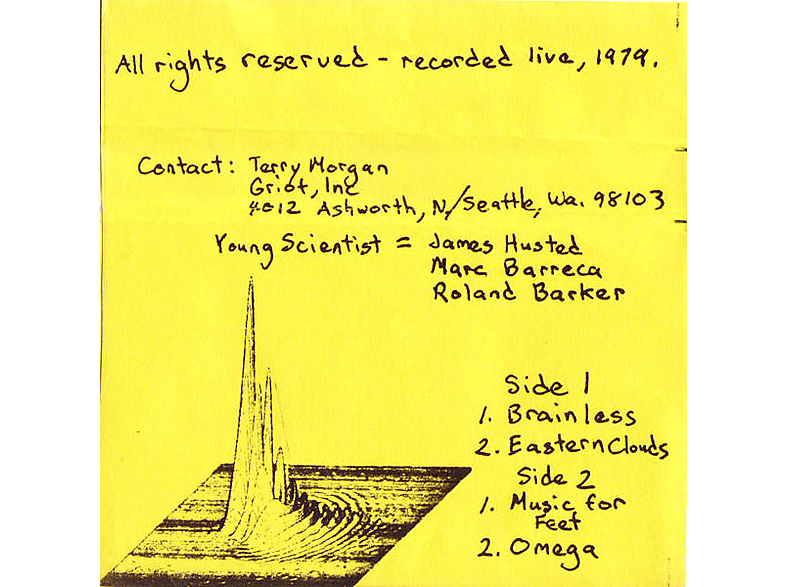 All rights reserved - recorded live, 1979.
Contact: Terry Morgan
Griot, Inc
4012 Ashworth, N/Seattle, Wa. 98103
Young Scientist = James Husted
Marc Barreca
Roland Barker
Side 1
1. Brainless
2. Eastern Clouds
Side 2
1. Music for
Feet
2. Omega